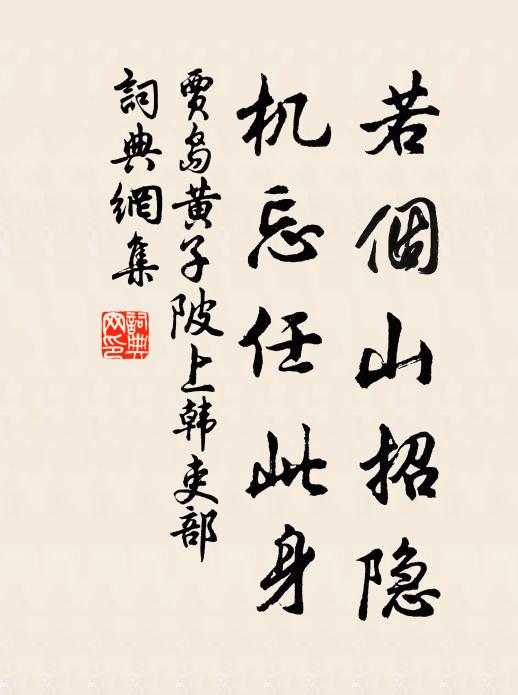 若個山招隐
机忘任此身
賈島黄子陂上韩吏部
詞典網集
詞典網印